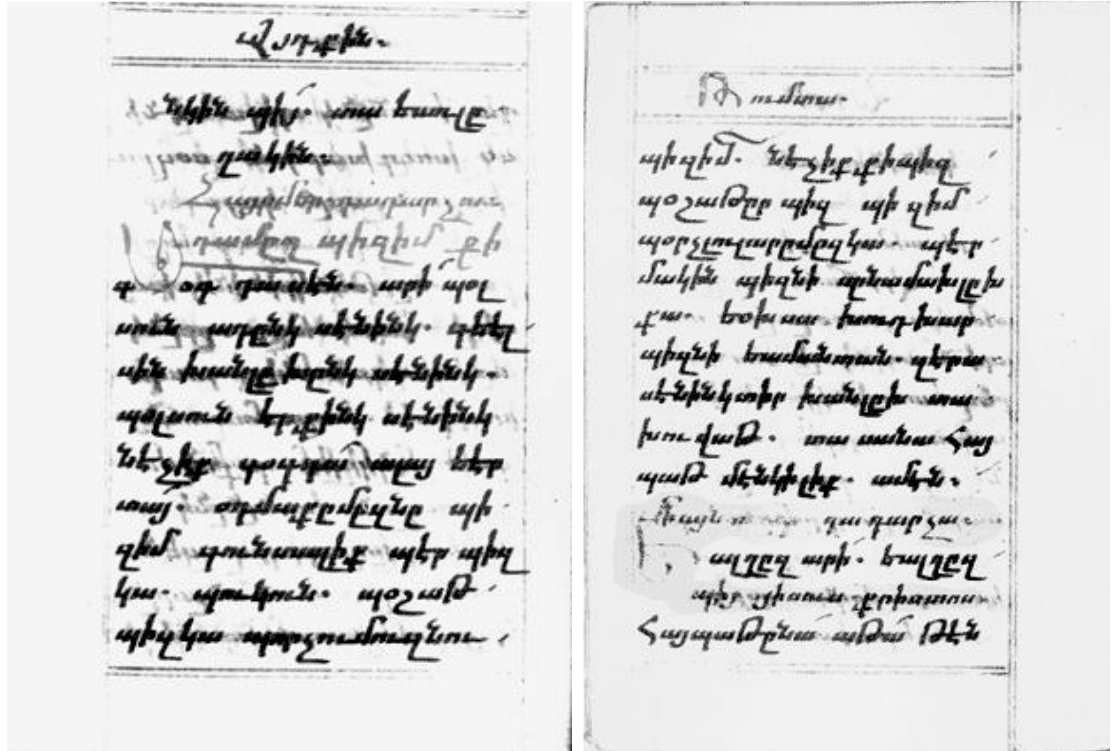 նկին պիմ. տա եառլը֊
ղակին.
թամըզ պիզիմ քի
քօքտասէն. արի պօլ
սուն ադընկ սէնինկ. քելլ
սին խանլըխընկ սէնինկ.
պօլսուն էրքինկ սէնինկ
նէչիք քօքտա՛ ալայ եէր
տայ. օթմաքըմըզնը պի
զիմ քունտակիք պէր պիզ
կա. պուկուն. պօշաթ
պիզկա պորչումուզնու
պիզիմ. նէչիք քի պիզ
պօշաթըր պիզ պի զիմ
պօրչլուլարըմըզկա. պէր
մակին պիզնի սընամախլըխ
քա. եօխսա խութխար
պիզնի եամանտան. զէրա
սէնինկտիր խանլըխ տա
խուվաթ. տա սանա հայ
պաթ մէնկիլիք. ամէն.
ալկըզ արի. եալկըզ
պիյ յիսուս քրիստոս
հայպաթընա աթա՛ թէն